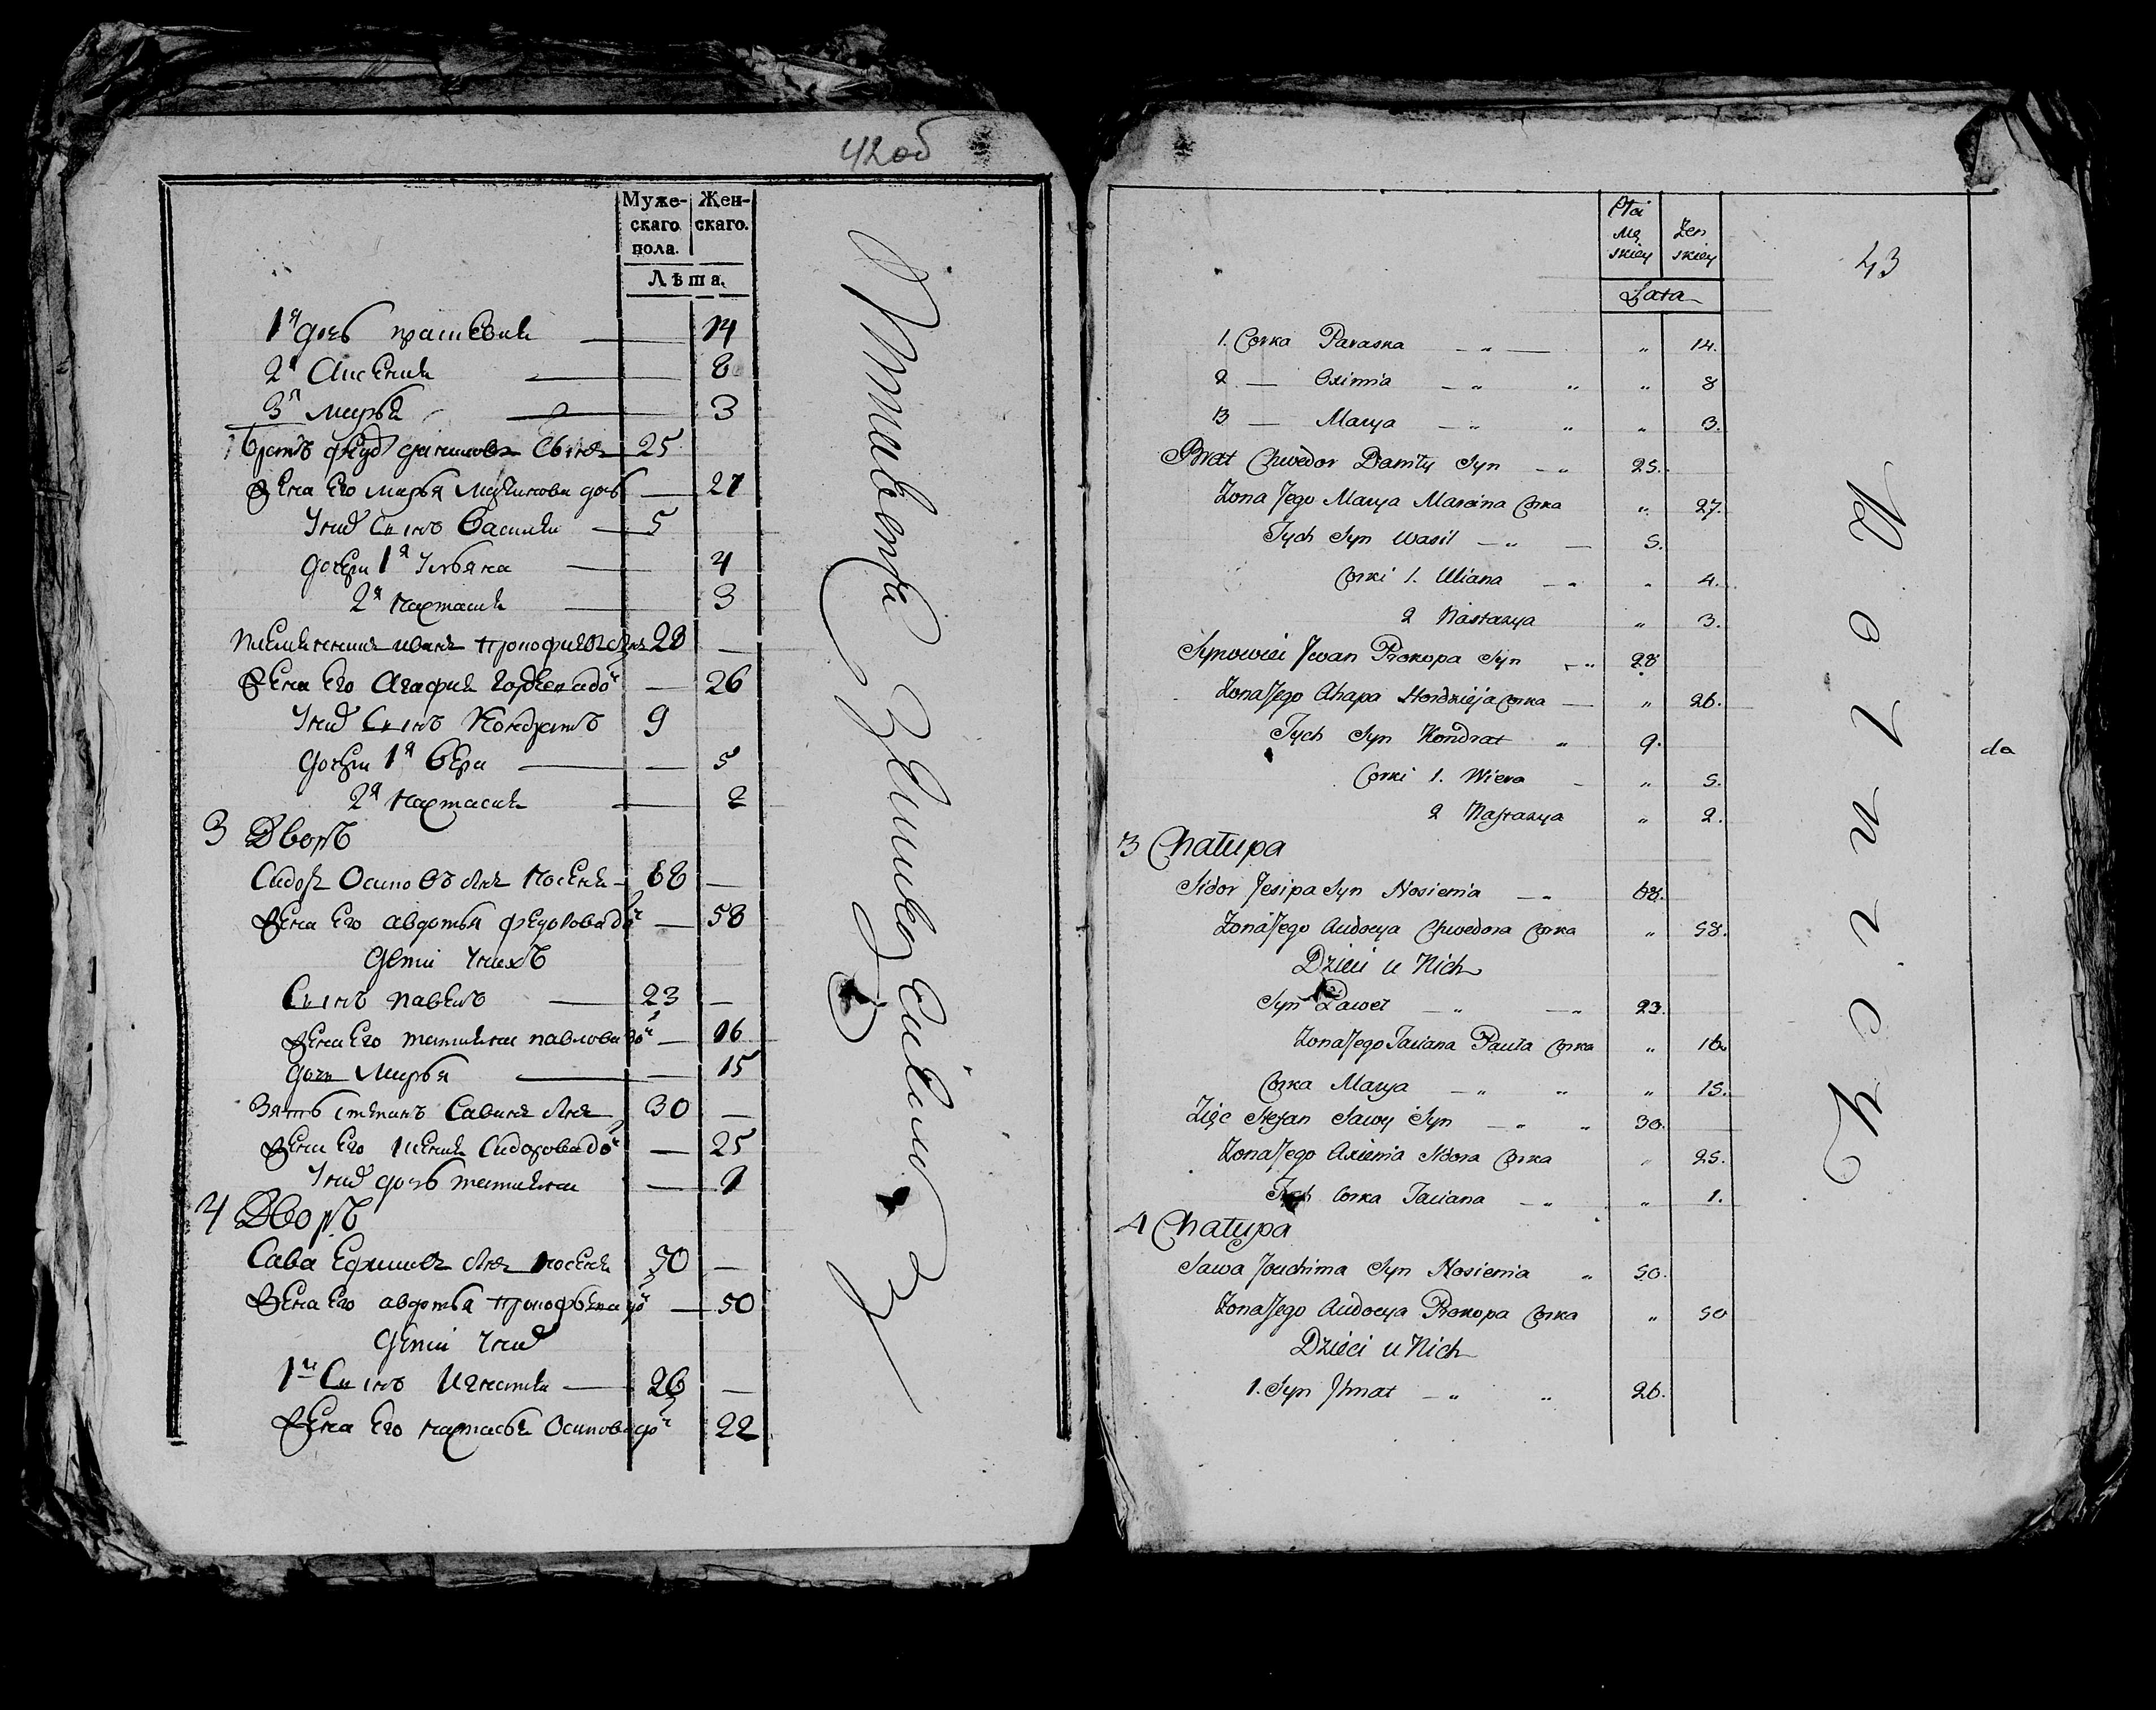 42об
Муже-
скаго
пола.
Жен-
скаго.
Лѣта.
1я дочь 14
2я Аксенья 8
3я Марья 3
Братъ Данилов Сынъ 25
Жена Его Марья дочь 27
Сынъ Василей 5
Дочери 1я Ульяна 4
2я Настасья 3
Племянникъ Иванъ Прокофьевъ Сынъ 28
Жена Его Агафья 26
Сынъ Кондратъ 9
Дочери 1я Вера 5
2я Настасья 2
3 Дворъ
Сидоръ Осиповъ Сынъ Носеня 68
Жена Его Авдотья Федорова до 58
Дети унихъ
Сынъ Павелъ 23
Жена Его Татьяна Павлова до 16
Дочь Марья 15
Зять Степанъ Савинъ Сынъ 30
Жена Его Сидорова до 25
дочь Татьяна 1
4 Дворъ
Сава Ефимовъ Сынъ Носеня 50
Жена Его Авдотья Прокофьева до 50
Дети
1й Сынъ Игнатей 26
Жена Его Настасья Осипова до 22
43
Płci
Mę
skiey
Żen
skiey
Lata
1. Corka Paraska „ 14.
2 — Oximia „ 8
3 — Marya „ 3.
Brat Chwedor Daniły Syn 25.
Żona Jego Marya Marcina Corka „ 27.
Tych Syn Wasil 5.
Corki 1. Uliana „ 4.
2 Nastazya „ 3.
Synowiec Jwan Prokopa Syn 28
Żona Jego Ahapa Hordzieja Corka „ 26.
Tych Syn Kondrat „ 9.
Corki 1. Wiera „ 5.
2 Nastazya „ 2.
3 Chałupa
Sidor Jesipa Syn Nosienia 68.
Żona Jego Audocya Chwedora Corka „ 58.
Dzieci u Nich
Syn Paweł 23.
Żona Jego Taciana Pauła Corka „ 16.
Corka Marya „ 15.
Zięc Stefan Sawy Syn 30.
Żona Jego Axienia Sidora Corka „ 25.
Tych Corka Taciana „ 1.
4 Chałupa
Sawa Jouchima Syn Nosienia „ 50.
Żona Jego Audocya Prokopa Corka „ 50
Dzieci u Nich
1. Syn Jhnat „ 26.
da